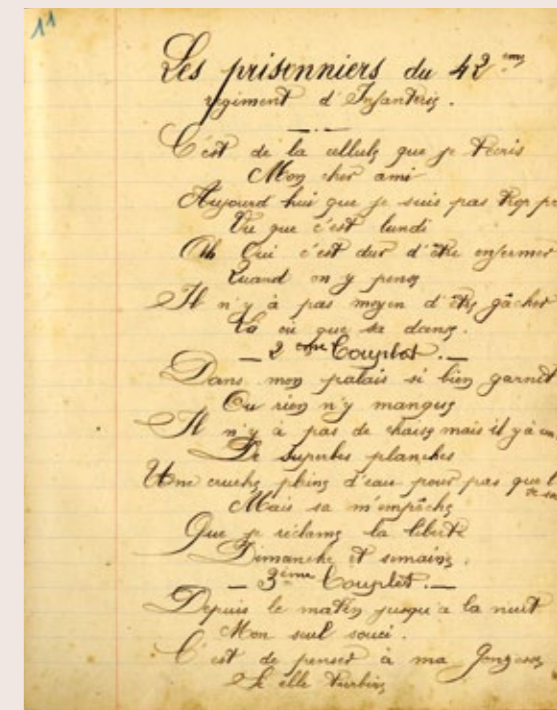 11
Les prisonniers du 42 ème
régiment d'Infanterie.
C'est de la cellule que je t'écris
Mon cher ami
Aujourd hui que je suis pas trop
Vu que c'est lundi
Oh Oui c'est dur d'être enfermer
Quand on y pense
Il n'y à pas moyen d'être gâcher
Là où que sa danse.
— 2 ème Couplet. —
Dans mon palais si bien garnit
Ou rien n'y manque
Il n'y à pas de chaise mais il y à
De superbes planches
Une cruche pleine d'eau pour pas que
Mais sa m'empêche
Que je réclame la liberté
Dimanche et semaine.
— 3ème Couplet. —
Depuis le matin jusqu'a la nuit
Mon seul souci.
C'est de penser à ma
Si elle turbine